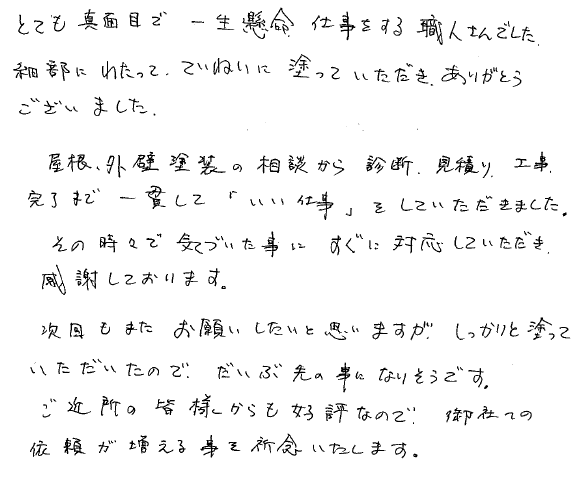 とても真面目で一生懸命仕事をする職人さんでした。
細部にわたって、ていねいに塗っていただき、ありがとう
ございました。
屋根、外壁塗装の相談から診断、見積り、工事、
完了まで一貫して「いい仕事」をしていただきました。
その時々で気づいた事にすぐに対応していただき、
感謝しております。
次回もまたお願いしたいと思いますが、しっかりと塗って
いただいたので、だいぶ先の事になりそうです。
ご近所の皆様からも好評なので、御社への
依頼が増える事を祈念いたします。